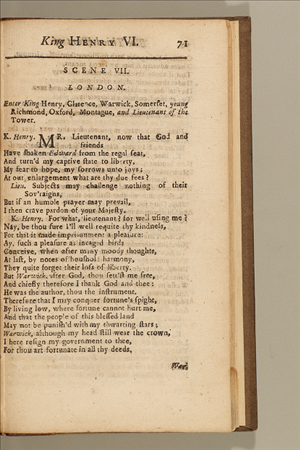 King HENRY VI. 71
SCENE VII.
LONDON.
Enter King Henry, Clarence, Warwick, Somerset, young
Richmond, Oxford, Montague, and Lieutenant of the
Tower.
K. Henry. MR. Lieutenant, now that God and
friends
Have shaken Edward from the regal seat,
And turn'd my captive state to liberty,
My fear to hope, my sorrows unto joys;
At our enlargement what are thy due fees?
Lieu. Subjects may challenge nothing of their
Sov'raigns,
But if an humble prayer may prevail,
I then crave pardon of your Majesty.
K. Henry. For what, lieutenant? for well using me?
Nay, be thou sure I'll well requite thy kindness,
For that it made imprisonment a pleasure:
Ay, such a pleasure as incaged birds
Conceive, when after many moody thoughts,
At last, by notes of houshold harmony,
They quite forget their loss of liberty.
But Warwick, after God, thou set'st me free,
And chiefly therefore I thank God and thee:
He was the author, thou the instrument.
Therefore that I may conquer fortune's spight,
By living low, where fortune cannot hurt me,
And that the people of this blessed land
May not be punish'd with my thwarting stars;
Warwick, although my head still wear the crown,
I here resign my government to thee,
For thou art fortunate in all thy deeds.
War.